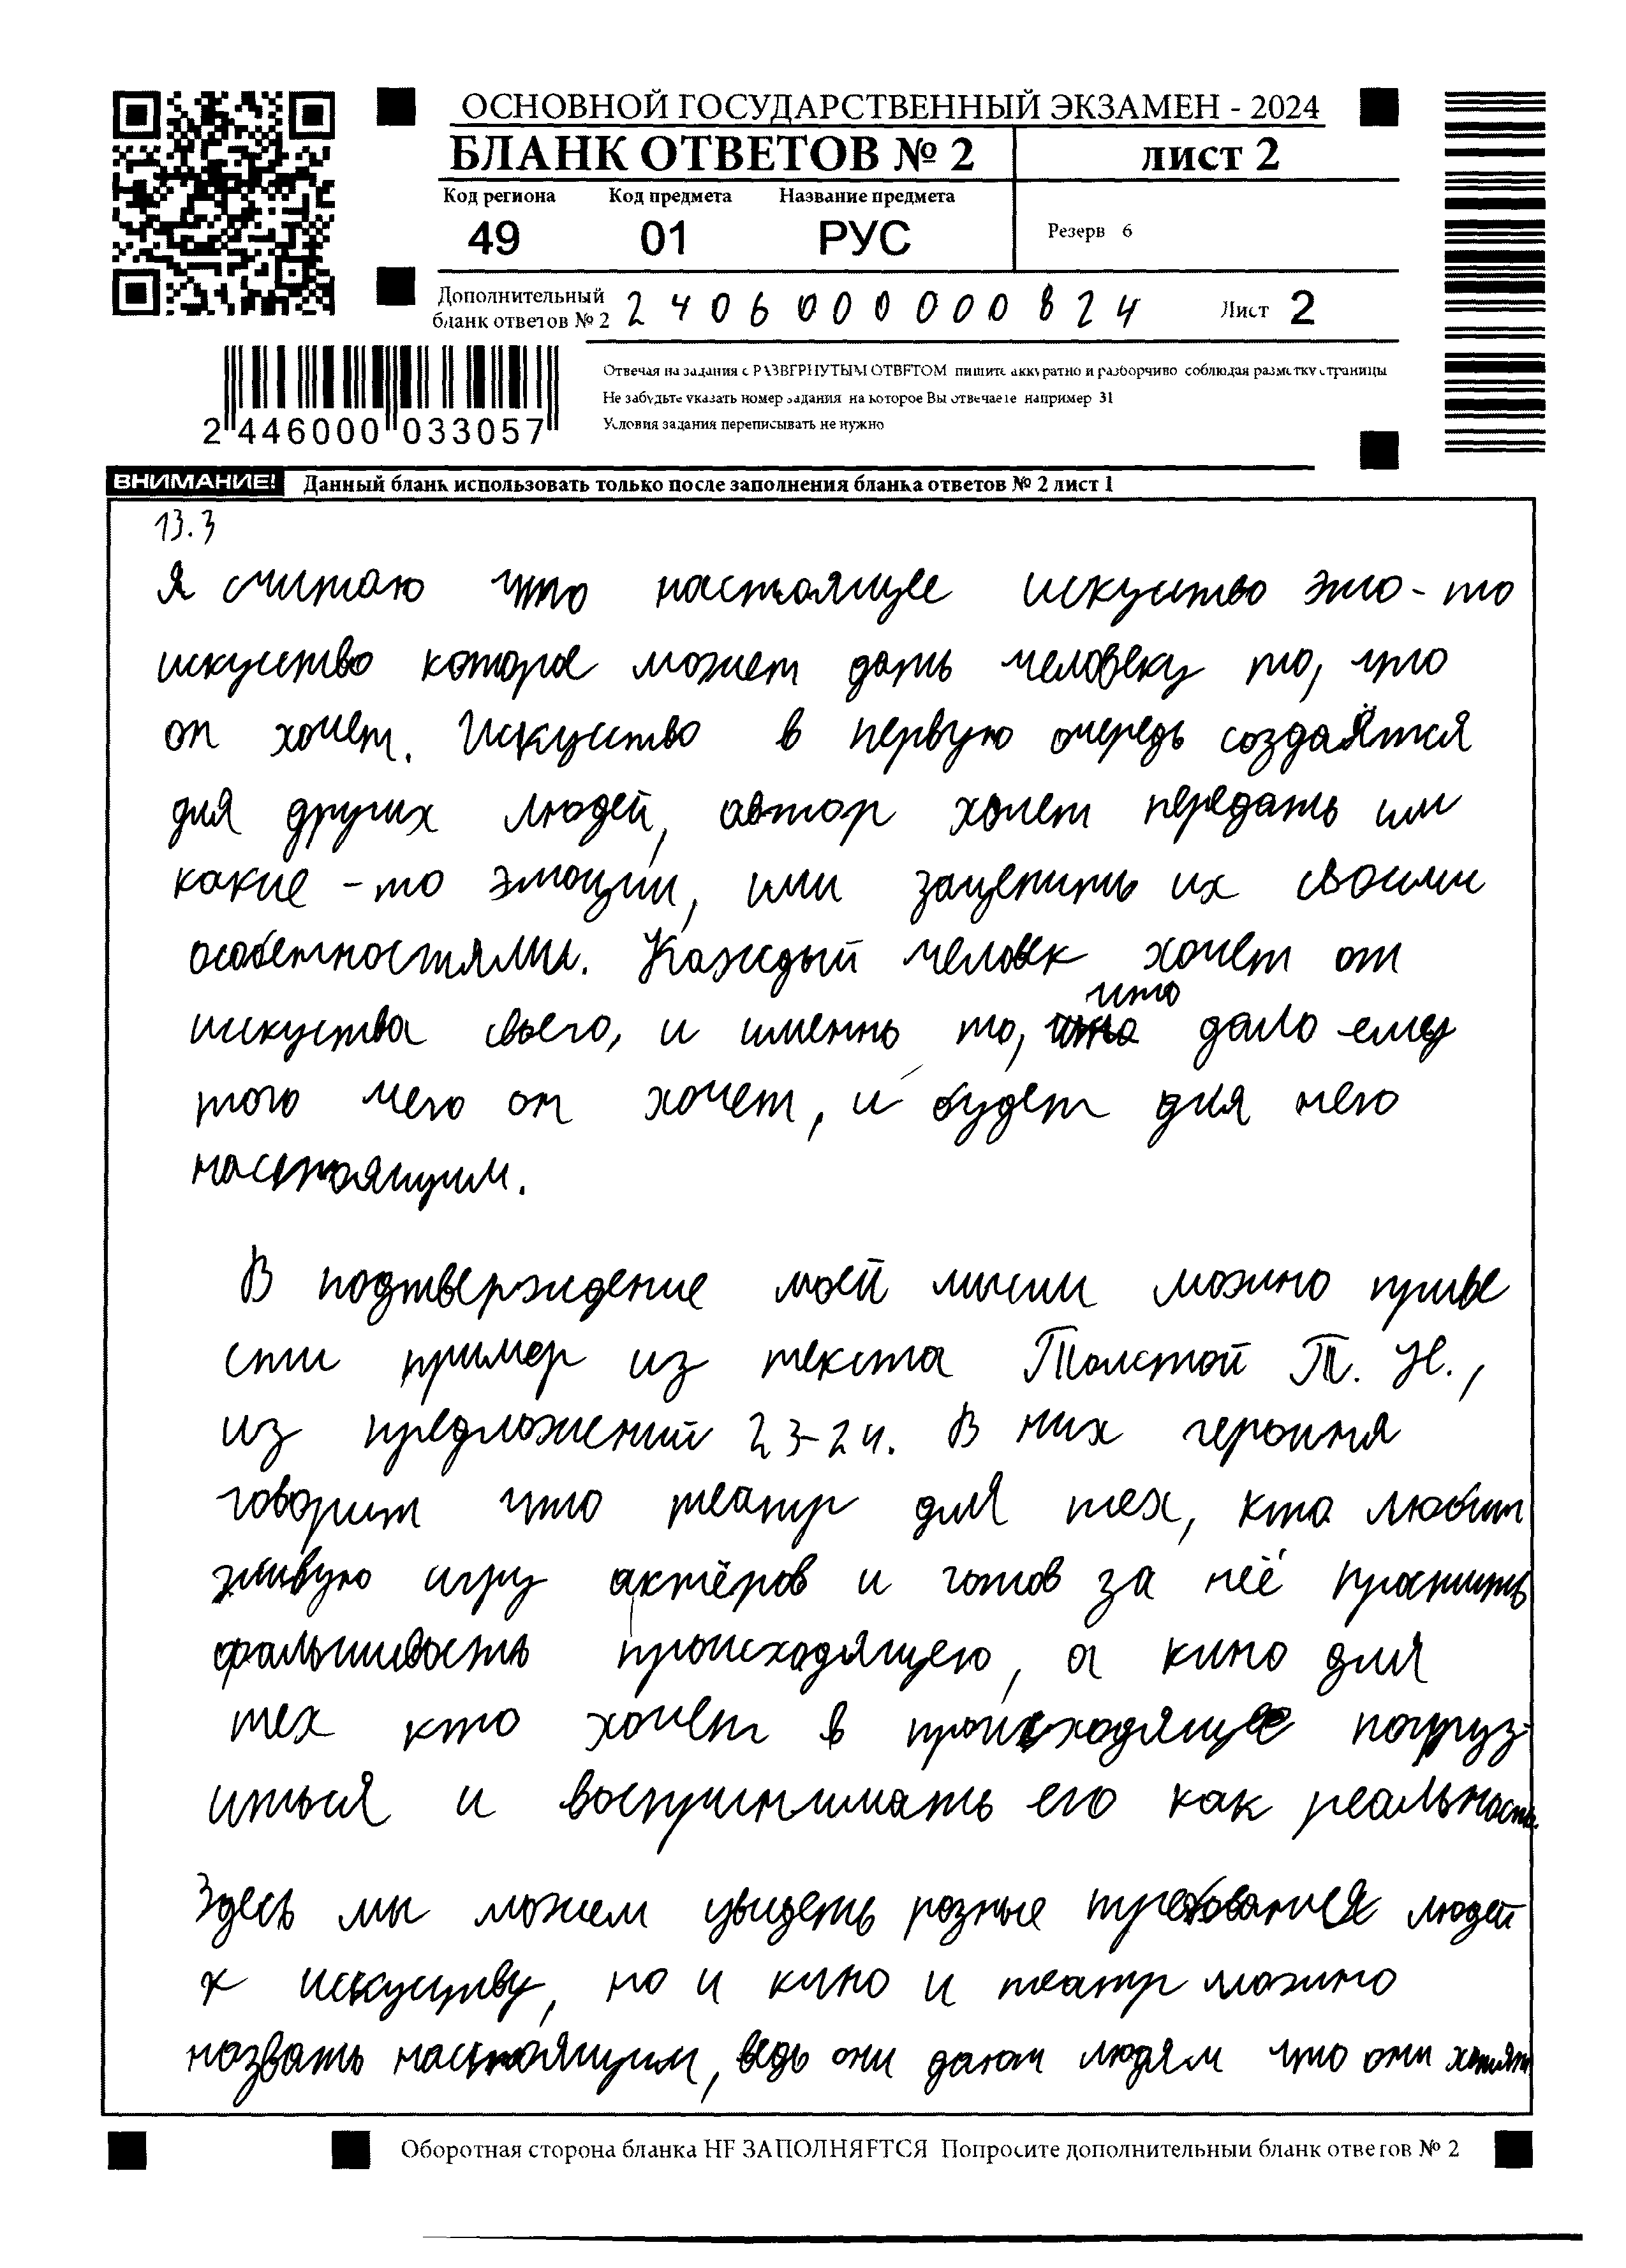 ОСНОВНОЙ ГОСУДАРСТВЕННЫЙ ЭКЗАМЕН - 2024
БЛАНК ОТВЕТОВ № 2 лист 2
Код региона Код предмета Название предмета
49 01 РУС Резерв 6
Дополнительный
бланк ответов № 2 2406000000824 Лист 2
Отвечая на задания с РАЗВЕРНУТЫМ ОТВЕТОМ пишите аккуратно и разборчиво соблюдая разметку страницы
Не забудьте указать номер задания на которое Вы отвечаете например 31
Условия задания переписывать не нужно
2 446000 033057
ВНИМАНИЕ! Данный бланк использовать только после заполнения бланка ответов № 2 лист 1
13.3
Я считаю что настоящее искуство это - то
искуство которое может дать человеку то, что
он хочет. Искуство в первую очередь создаётся
для других людей, автор хочет передать им
какие - то эмоции, или зацепить их своими
особенностями. Каждый человек хочет от
искуства своего, и именно то, что дало ему
того чего он хочет, и будет для него
настоящим.
В подтверждение моей мысли можно приве
сти пример из текста Толстой Т. Н.,
из предложений 23-24. В них героиня
говорит что театр для тех, кто любит
живую игру актёров и готов за неё простить
фальшивость происходящего, а кино для
тех кто хочет в происходящее погруз-
иться и воспринимать его как реальность.
Здесь мы можем увидеть разные требования людей
к искуству, но и кино и театр можно
назвать настоящим, ведь они дают людям что они хотят
Оборотная сторона бланка НЕ ЗАПОЛНЯЕТСЯ Попросите дополнительный бланк ответов № 2